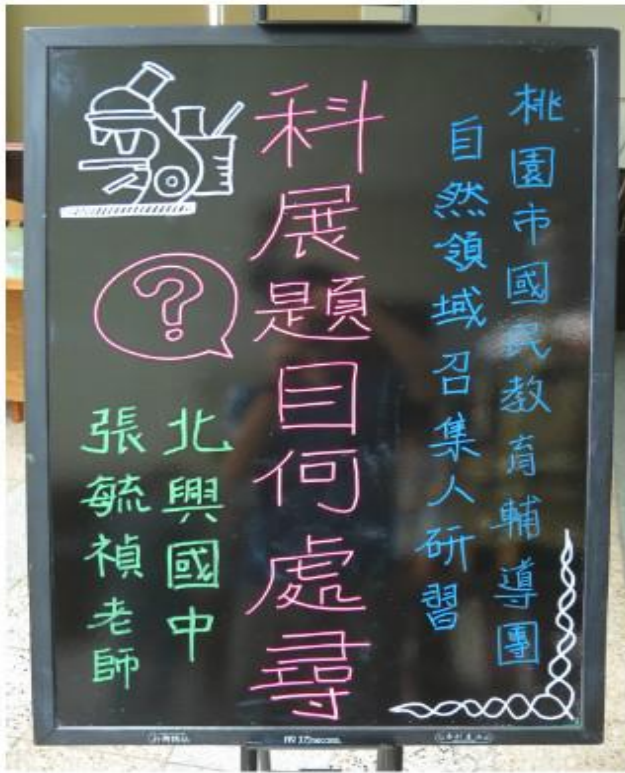 桃園市國民教育輔導團
自然領域召集人研習
科展題目何處尋
?
北興國中
張毓禎老師